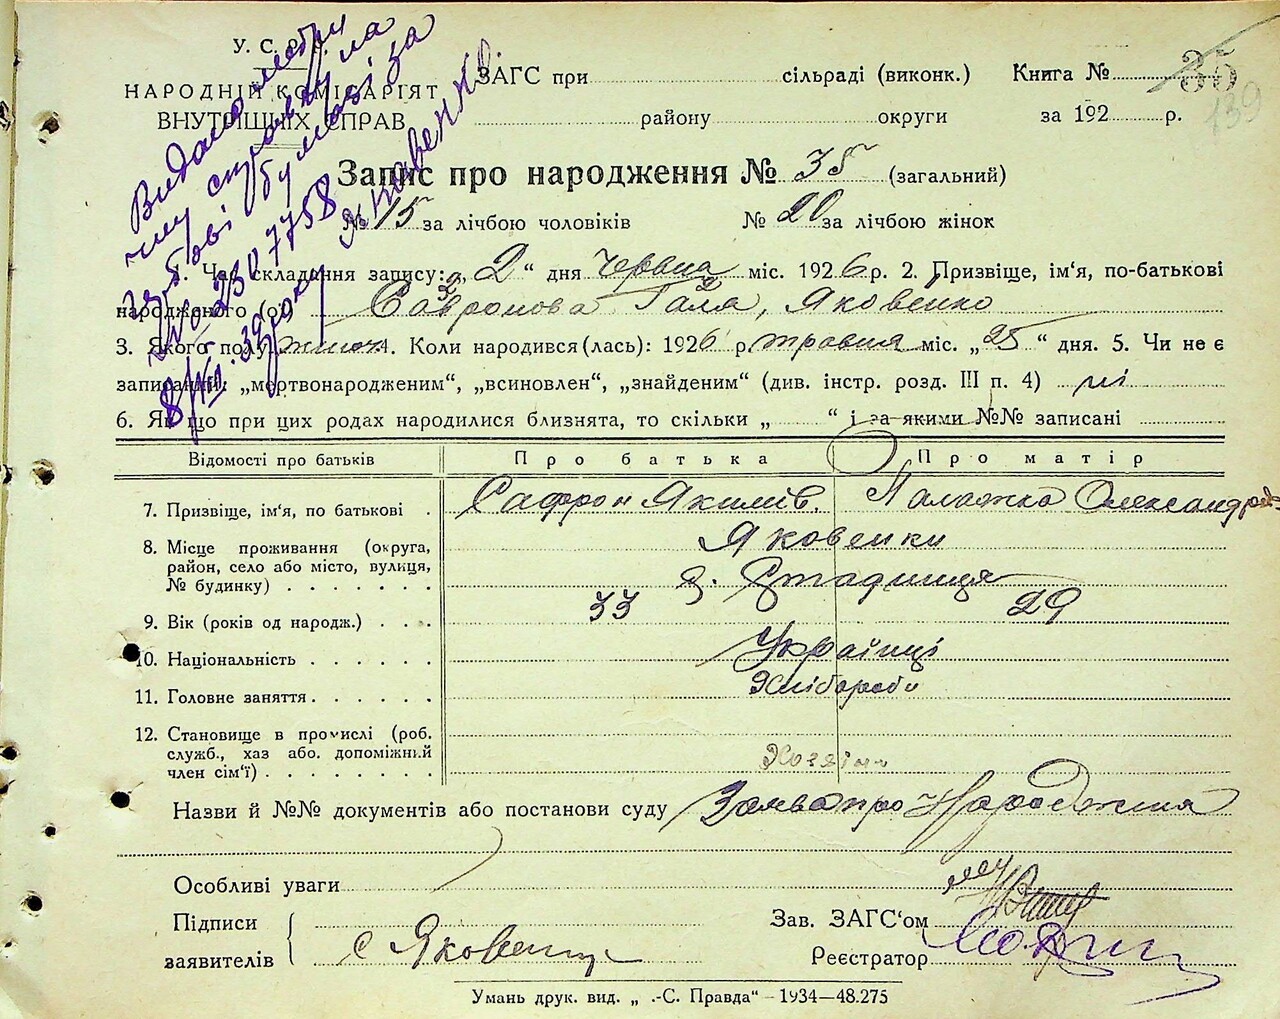 У. С. Р. Р.
НАРОДНІЙ КОМІСАРІЯТ
ВНУТРІШНІХ СПРАВ
ЗАГС при сільраді (виконк.) Книга №
35
139
району округи за 192 р.
Запис про народження № 35 (загальний)
№ 15 за лічбою чоловіків № 20 за лічбою жінок
1. Час складання запису: „ 2 “ дня червня міс. 1926 р. 2. Призвіще, ім'я, по-батькові
народженого (ої) Сафронова Галя, Яковенко
3. Якого полу жіноч 4. Коли народився (лась): 1926 р. травня міс. „ 25 “ дня. 5. Чи не є
записаний: „мертвонародженим“, „всиновлен“, „знайденим“ (див. інстр. розд. III п. 4) ні
6. Якщо при цих родах народилися близнята, то скільки „ “ і за якими №№ записані
Відомості про батьків Про батька Про матір
7. Призвіще, ім'я, по батькові Сафрон Якимів. Палажка Олександров
Яковенки
8. Місце проживання (округа, район, село або місто, вулиця, № будинку)
9. Вік (років од народж.) 33 29
10. Національність Українці
11. Головне заняття Хлібороби
12. Становище в промислі (роб. служб., хаз або. допоміжний член сім'ї)
Назви й №№ документів або постанови суду Заява про Народження
Особливі уваги
Підписи
заявителів
с Яковенко
Зав. ЗАГС'ом
Реєстратор
Умань друк. вид. „ .-С. Правда“ - 1934—48.275
Видано
№ 2307758
8/VII 39 року
Яковенко.